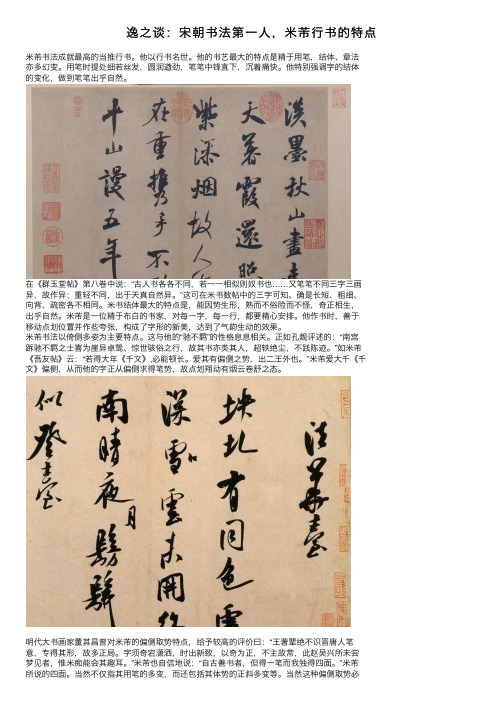 逸之谈：宋朝书法第一人，米芾行书的特点
米芾书法成就最高的当推行书。他以行书名世。他的书艺最大的特点是精于用笔，结体、章法
亦多幻变。用笔时提处细若丝发，圆润遒劲，笔笔中锋直下，沉着痛快。他特别强调字的结体
的变化，做到笔笔出乎自然。
淡墨秋山畫
天暮霞還照
紫深烟故人
在重攜手不
十山謾五年
在《群玉堂帖》第八卷中说：“古人书各各不同，若一一相似则奴书也……又笔笔不同三字三画
异，故作异；重轻不同，出于天真自然异。”这可在米书数帖中的三字可知、确是长短、粗细、
向背、疏密各不相同。米书结体最大的特点是，能因势生形，熟而不俗险而不怪，奇正相生，
出乎自然。米芾是一位精于布白的书家，对每一字，每一行，都要精心安排。他作书时，善于
移动点划位置并作些夸张，构成了字形的新美，达到了气韵生动的效果。
米芾书法以倚侧多姿为主要特点。这与他的“驰不羁”的性格息息相关。正如孔觌评述的：“南宫
跅驰不羁之士喜为崖异卓鸷、惊世骇俗之行，故其书亦类其人，超轶绝尘，不践陈迹。“如米芾
《吾友帖》云：“若得大年《千文》,必能顿长。爱其有偏侧之势，出二王外也。”米芾爱大千《千
文》偏侧，从而他的字正从偏侧求得笔势，故点划翔动有烟云卷舒之态。
法華臺
坱圠有同色
深雪雲未開
南晴夜月
似登臺
明代大书画家董其昌曾对米芾的偏侧取势特点，给予较高的评价曰：“王著辈绝不识晋唐人笔
意，专得其形，故多正局。字须奇宕潇洒，时出新致，以奇为正，不主故常，此赵吴兴所未尝
梦见者，惟米痴能会其趣耳。”米芾也自信地说：“自古善书者，但得一笔而我独得四面。”米芾
所说的四面。当然不仅指其用笔的多变，而还包括其体势的正斜多变等。当然这种偏侧取势必